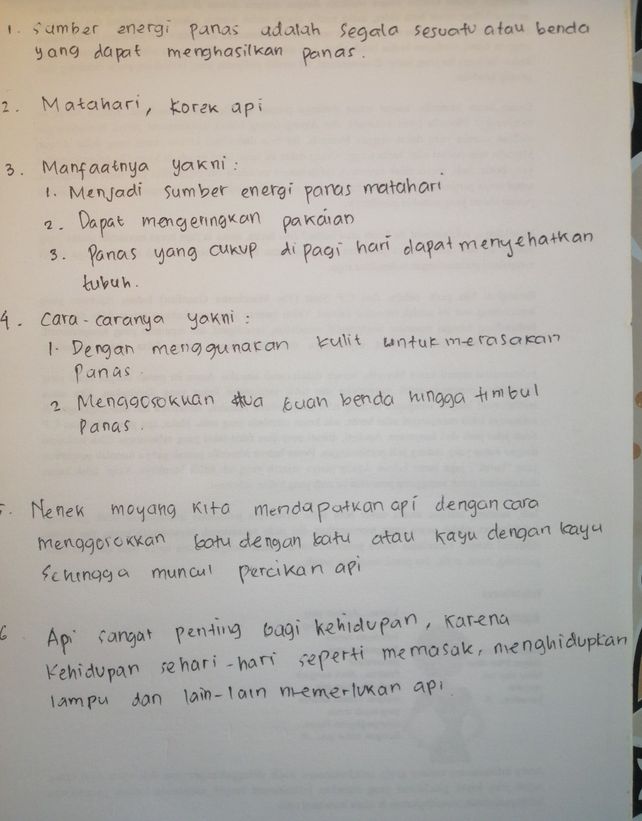 1. Sumber energi panas adalah segala sesuatu atau benda
yang dapat menghasilkan panas.
2. Matahari, korek api
3. Manfaatnya yakni :
1. Menjadi sumber energi panas matahari
2. Dapat mengeringkan pakaian
3. Panas yang cukup di pagi hari dapat menyehatkan
tubuh.
4. Cara-caranya yakni :
1. Dengan menggunakan kulit untuk merasakan
panas.
2 Menggosokkan dua buah benda hingga timbul
panas.
5. Nenek moyang kita mendapatkan api dengan cara
menggosokkan batu dengan batu atau kayu dengan kayu
sehingga muncul percikan api
6 Api sangat penting bagi kehidupan, karena
kehidupan sehari-hari seperti memasak, menghidupkan
lampu dan lain-lain memerlukan api.